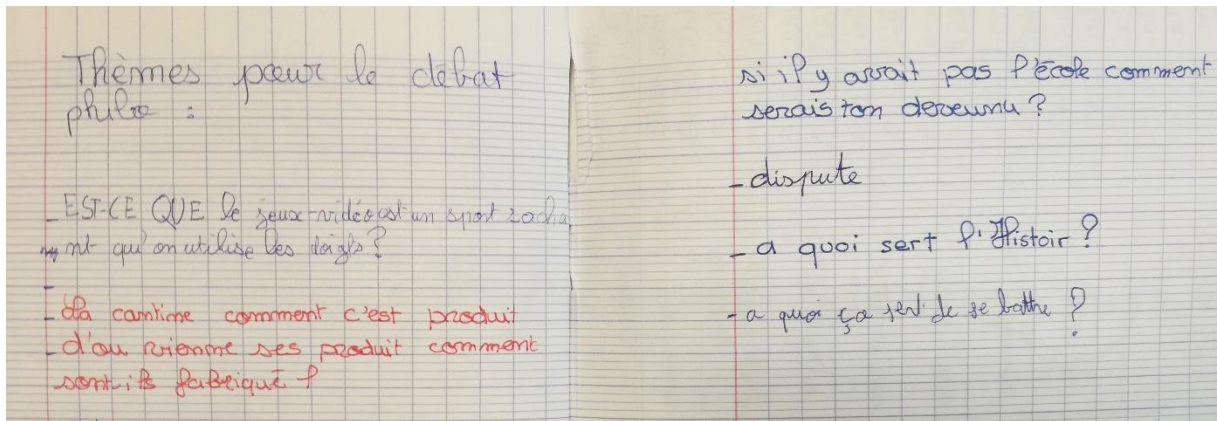 Thèmes pour le débat
philo :
- EST-CE QUE le jeux-vidéo est un sport sacha
nt qu'on utilise les doigts ?
-
- La cantine comment c'est produit
- d'ou vienne ses produit comment
sont-ils fabriqué ?
si il y avait pas l'école comment
serais ton devenu ?
- dispute
- a quoi sert l'Histoir ?
- a quoi ça sert de se battre ?